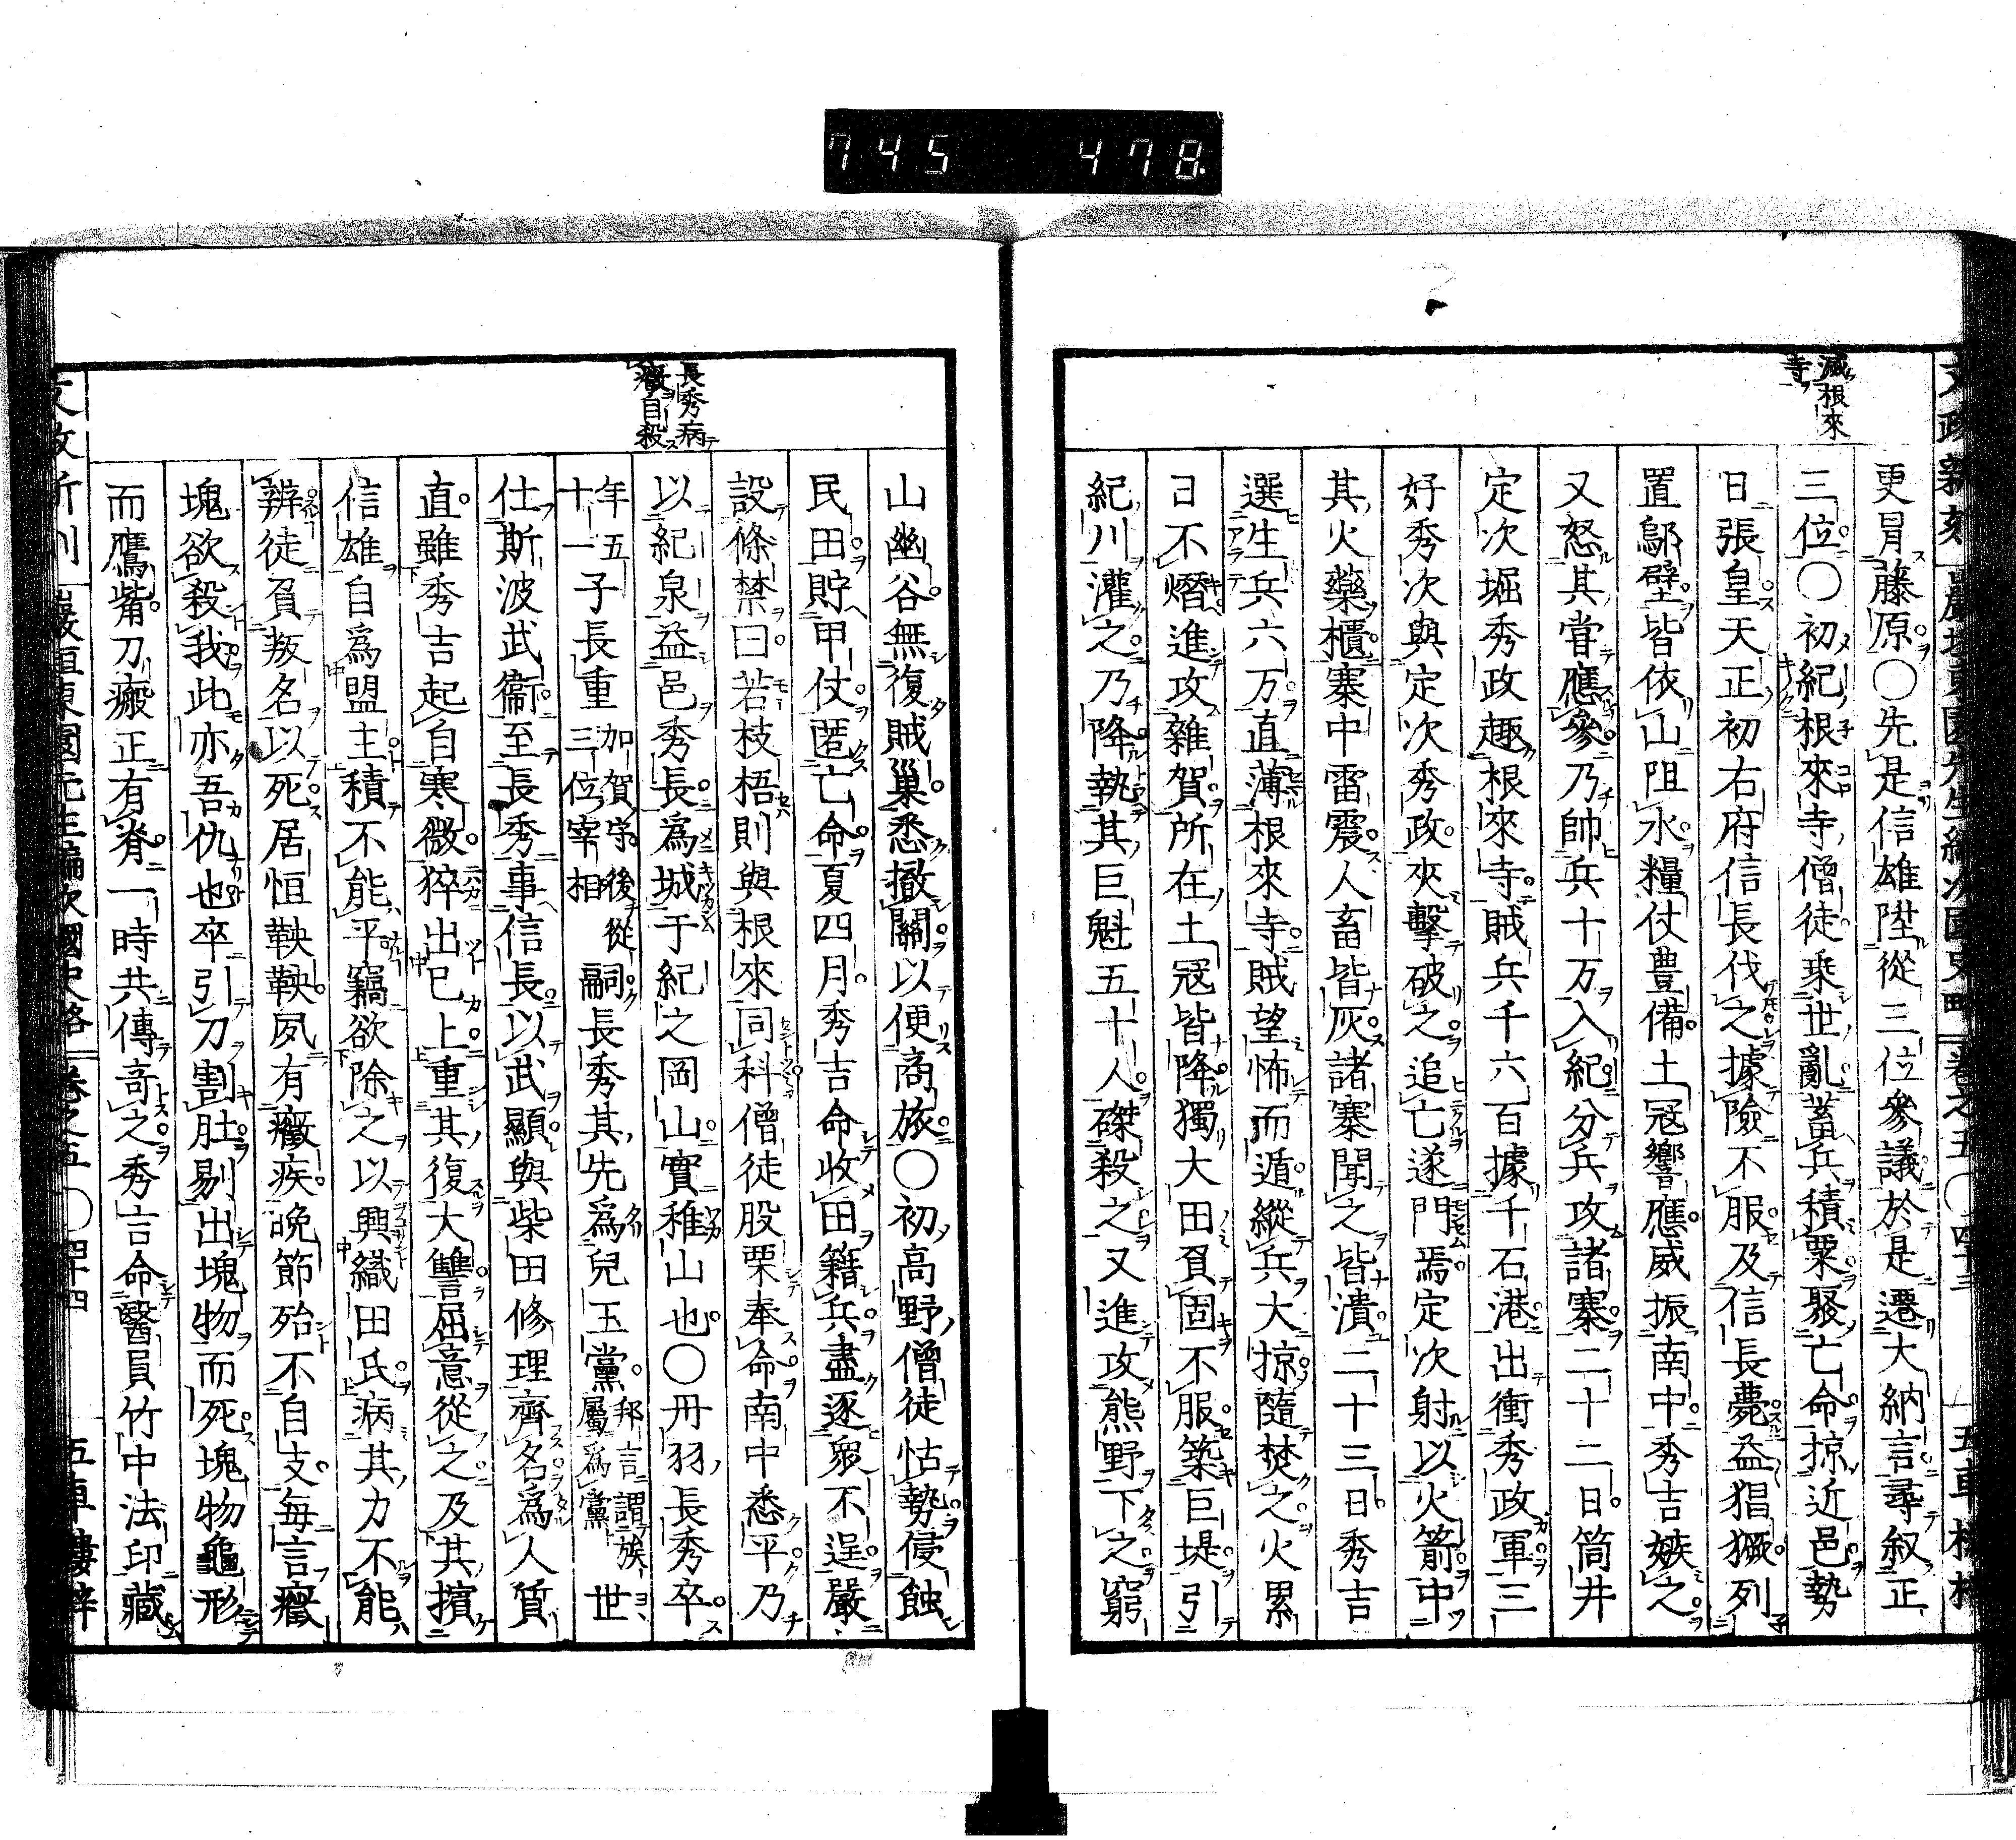 745 478
滅根來
寺
更冒藤原○先是信雄陞從三位參議於是遷大納言尋叙正
三位○初紀根來寺僧徒乘世亂蓄兵積粟聚亡命掠近邑勢
日張皇天正初右府信長伐之據險不服及信長薨益猖獗列
置鄔壁皆依山阻水糧仗豊備土冦響應威振南中秀吉嫉之
又怒其甞應參乃帥兵十万入紀分兵攻諸寨二十二日筒井
定次堀秀政趣根來寺賊兵千六百據千石港出衝秀政軍三
好秀次與定次秀政夾擊破之追亡遂門焉定次射以火箭中
其火藥櫃寨中雷震人畜皆灰諸寨聞之皆潰二十三日秀吉
選生兵六万直薄根來寺賊望怖而遁縱兵大掠隨焚之火累
日不熸進攻雜賀所在土冦皆降獨大田負固不服築巨堤引
紀川灌之乃降執其巨魁五十人磔殺之又進攻熊野下之窮
山幽谷無復賊巢悉撤關以便商旅○初高野僧徒怙勢侵蝕
民田貯甲仗匿亡命夏四月秀吉命收田籍兵盡逐衆不逞嚴
設條禁曰若枝梧則與根來同科僧徒股栗奉命南中悉平乃
以紀泉益邑秀長爲城于紀之岡山實稚山也○丹羽長秀卒
年五十一子長重加賀守後從三位宰相嗣長秀其先爲兒玉黨邦言謂族屬爲黨世
仕斯波武衞至長秀事信長以武顯與柴田修理齊名爲人質
直雖秀吉起自寒微猝出己上重其復大讐屈意從之及其擯
信雄自爲盟主積不能平竊欲除之以興織田氏病其力不能
辨徒負叛名以死居恒鞅鞅夙有癥疾晩節殆不自支毎言癥
塊欲殺我此亦吾仇也卒引刀割肚剔出塊物而死塊物龜形
而鷹觜刀瘢正有脊一時共傳奇之秀吉命醫員竹中法印藏
長秀病
癥自殺